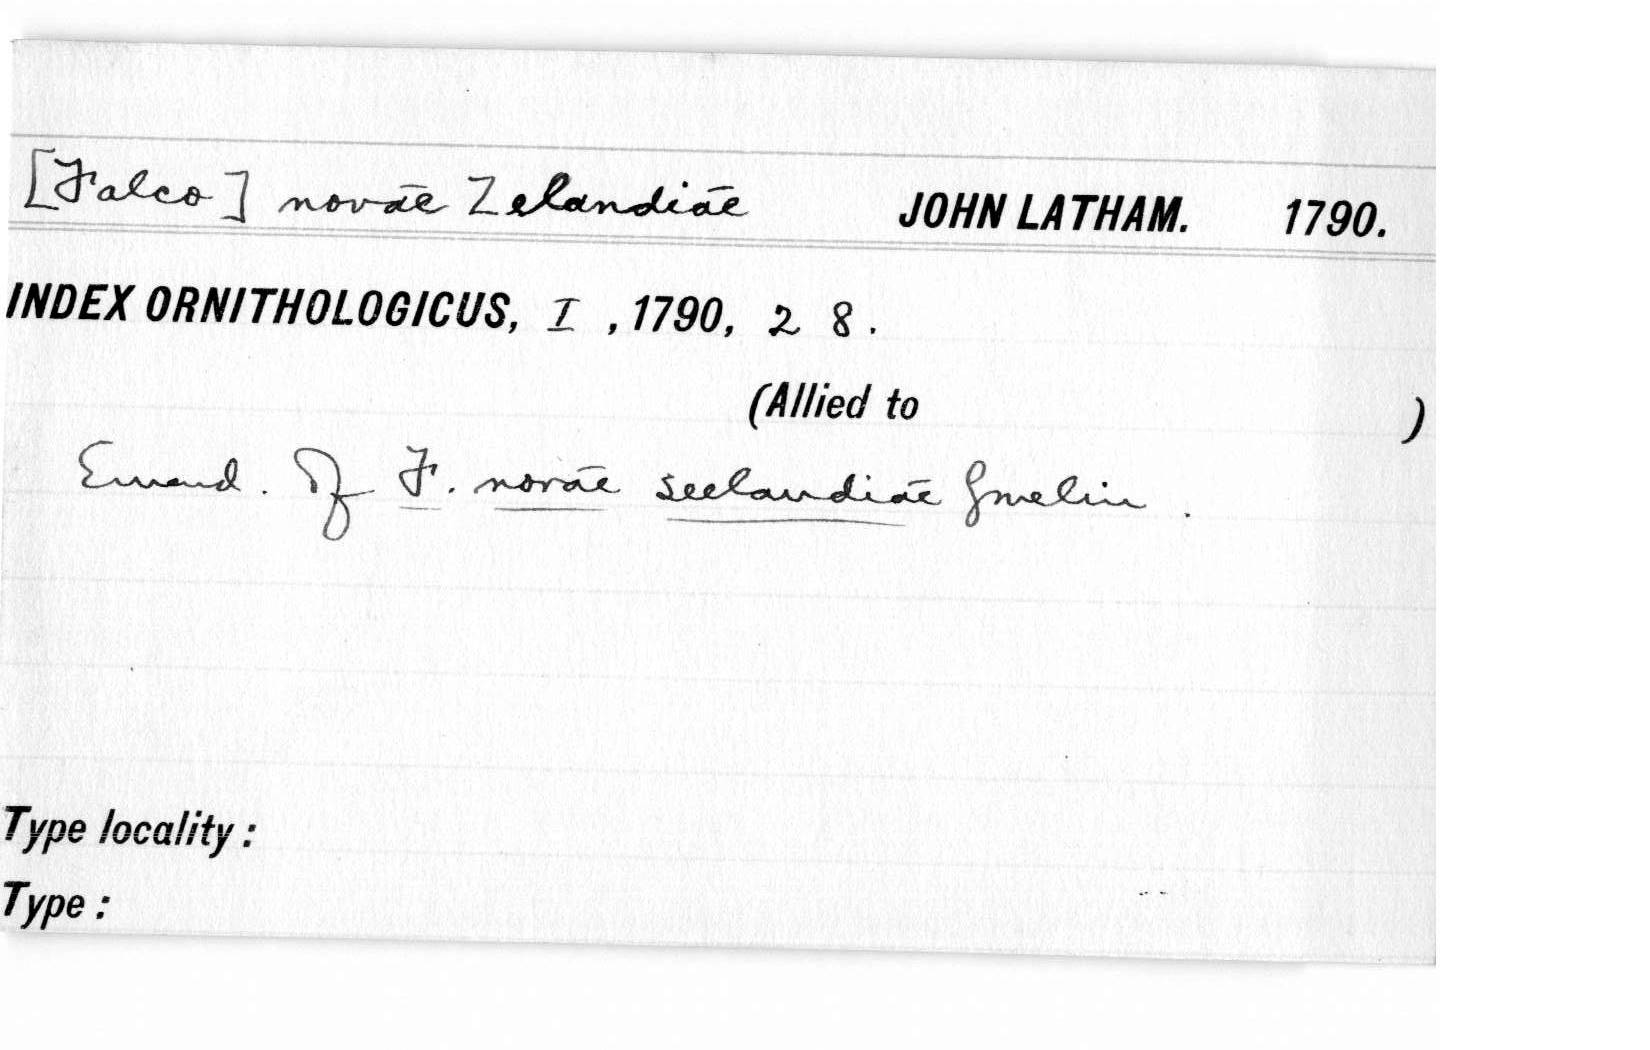 [Falco] novāe Zelandiāe JOHN LATHAM. 1790.
INDEX ORNITHOLOGICUS, I , 1790, 28.
(Allied to )
Emend. Of F. novāe seelandiāe Gmelin.
Type locality :
Type :